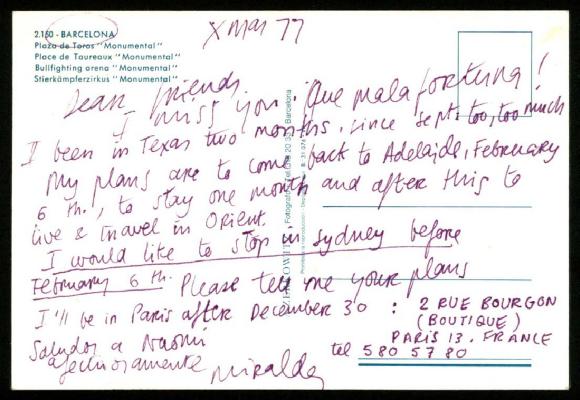 X mas 77
2.150 - BARCELONA
Plaza de Toros "Monumental"
Place de Taureaux "Monumental"
Bullfighting arena "Monumental"
Stierkämpferzirkus "Monumental"
Dear friends.
I miss you. Que mala fortuna!
I been in Texas two months, since sept. too, too much
My plans are to come back to Adelaide, February
6 th., to stay one month and after this to
live & travel in Orient.
I would like to stop in Sydney before
February 6 th. Please tell me your plans
I'll be in Paris after December 30 : 2 RUE BOURGON
(BOUTIQUE)
PARIS 13. FRANCE
tel 580 57 80
Saludos a Naomi
afectuosamente
Miralda